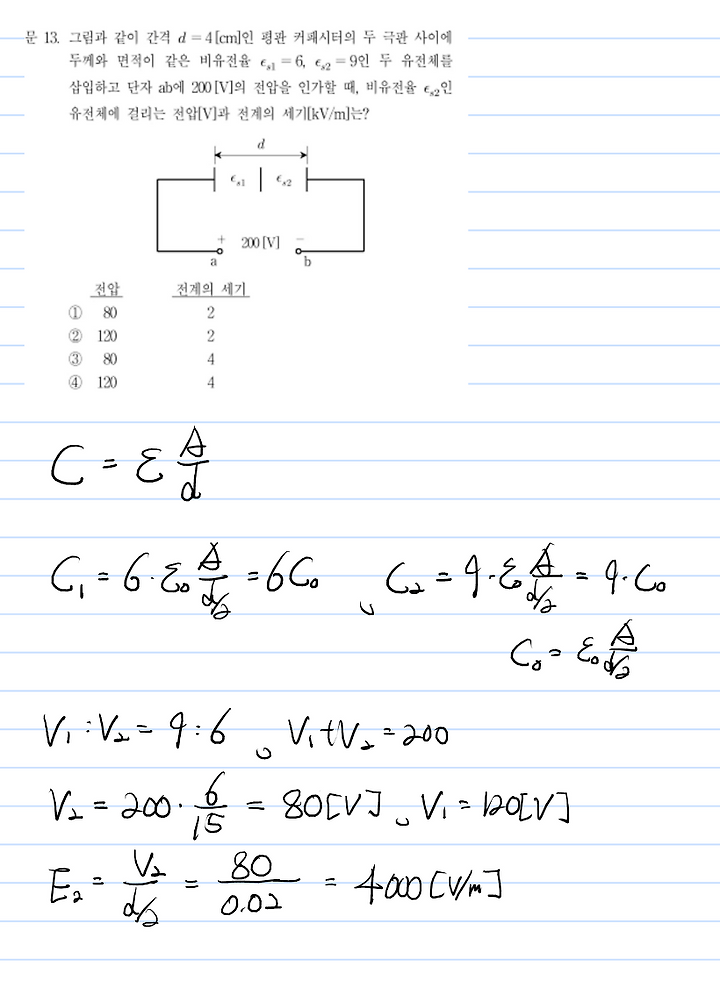 문 13. 그림과 같이 간격 d = 4[cm]인 평판 커패시터의 두 극판 사이에
두께와 면적이 같은 비유전율 ϵs1 = 6, ϵs2 = 9인 두 유전체를
삽입하고 단자 ab에 200[V]의 전압을 인가할 때, 비유전율 ϵs2인
유전체에 걸리는 전압[V]과 전계의 세기[kV/m]는?
d
ϵs1 ϵs2
+ 200[V] −
a b
전압 전계의 세기
① 80 2
② 120 2
③ 80 4
④ 120 4
C = ε A/d
C₁ = 6·ε₀ A/(d/2) = 6C₀ , C₂ = 9·ε₀ A/(d/2) = 9·C₀
C₀ = ε₀ A/(d/2)
V₁ : V₂ = 9 : 6 , V₁+V₂ = 200
V₂ = 200 · 6/15 = 80[V] , V₁ = 120[V]
E₂ = V₂/(d/2) = 80/0.02 = 4000[V/m]